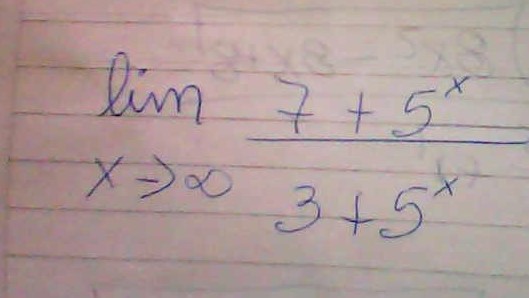 lim 7 + 5^x
x→∞ 3 + 5^x